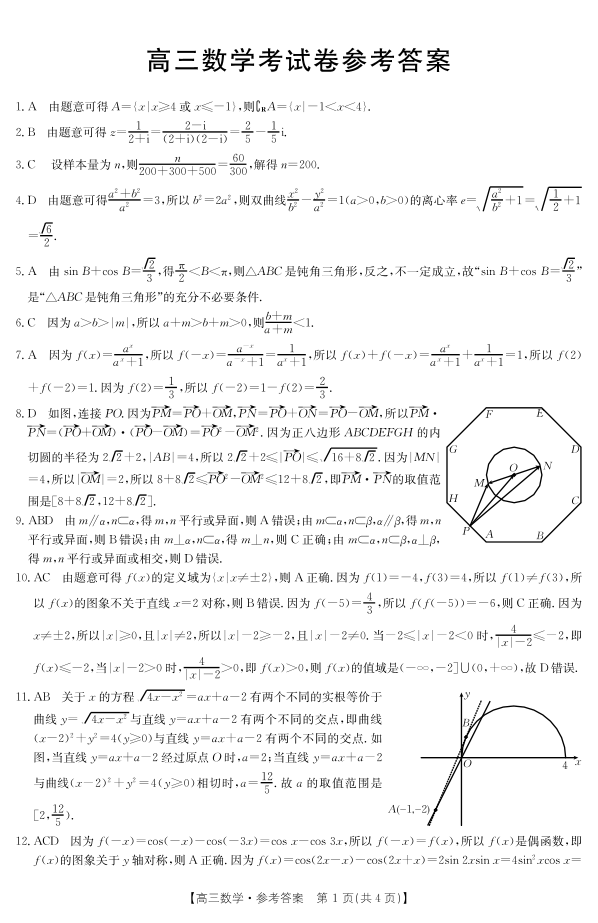 高三数学考试卷参考答案
1. A 由题意可得 A={x|x≥4 或 x≤-1},则∁RA={x|-1<x<4}.
2. B 由题意可得 z=1/(2+i)=(2-i)/((2+i)(2-i))=2/5-1/5 i.
3. C 设样本量为 n,则n/(200+300+500)=60/300,解得 n=200.
4. D 由题意可得(a²+b²)/a²=3,所以 b²=2a²,则双曲线x²/b²-y²/a²=1(a>0,b>0)的离心率 e=√(a²/b²+1)=√(1/2+1)
=√6/2.
5. A 由 sin B+cos B=√2/3,得π/2<B<π,则△ABC 是钝角三角形,反之,不一定成立,故“sin B+cos B=√2/3”
是“△ABC 是钝角三角形”的充分不必要条件.
6. C 因为 a>b>|m|,所以 a+m>b+m>0,则(b+m)/(a+m)<1.
7. A 因为 f(x)=aˣ/(aˣ+1),所以 f(-x)=a⁻ˣ/(a⁻ˣ+1)=1/(aˣ+1),所以 f(x)+f(-x)=aˣ/(aˣ+1)+1/(aˣ+1)=1,所以 f(2)
+f(-2)=1.因为 f(2)=1/3,所以 f(-2)=1-f(2)=2/3.
8. D 如图,连接 PO.因为PM→=PO→+OM→,PN→=PO→+ON→=PO→-OM→,所以PM→·
PN→=(PO→+OM→)·(PO→-OM→)=PO→²-OM→².因为正八边形 ABCDEFGH 的内
切圆的半径为 2√2+2,|AB|=4,所以 2√2+2≤|PO→|≤√(16+8√2).因为|MN|
=4,所以|OM→|=2,所以 8+8√2≤PO→²-OM→²≤12+8√2,即PM→·PN→的取值范
围是[8+8√2,12+8√2].
F E G D O N M H C P A B
9. ABD 由 m∥α,n⊂α,得 m,n 平行或异面,则 A 错误;由 m⊂α,n⊂β,α∥β,得 m,n
平行或异面,则 B 错误;由 m⊥α,n⊂α,得 m⊥n,则 C 正确;由 m⊂α,n⊂β,α⊥β,
得 m,n 平行或异面或相交,则 D 错误.
10. AC 由题意可得 f(x)的定义域为{x|x≠±2},则 A 正确.因为 f(1)=-4,f(3)=4,所以 f(1)≠f(3),所
以 f(x)的图象不关于直线 x=2 对称,则 B 错误.因为 f(-5)=4/3,所以 f(f(-5))=-6,则 C 正确.因为
x≠±2,所以|x|≥0,且|x|≠2,所以|x|-2≥-2,且|x|-2≠0.当-2≤|x|-2<0 时,4/(|x|-2)≤-2,即
f(x)≤-2,当|x|-2>0 时,4/(|x|-2)>0,即 f(x)>0,则 f(x)的值域是(-∞,-2]∪(0,+∞),故 D 错误.
11. AB 关于 x 的方程√(4x-x²)=ax+a-2 有两个不同的实根等价于
曲线 y=√(4x-x²)与直线 y=ax+a-2 有两个不同的交点,即曲线
(x-2)²+y²=4(y≥0)与直线 y=ax+a-2 有两个不同的交点.如
图,当直线 y=ax+a-2 经过原点 O 时,a=2;当直线 y=ax+a-2
与曲线(x-2)²+y²=4(y≥0)相切时,a=12/5.故 a 的取值范围是
[2,12/5).
y B O 4 x A(-1,-2)
12. ACD 因为 f(-x)=cos(-x)-cos(-3x)=cos x-cos 3x,所以 f(-x)=f(x),所以 f(x)是偶函数,即
f(x)的图象关于 y 轴对称,则 A 正确.因为 f(x)=cos(2x-x)-cos(2x+x)=2sin 2xsin x=4sin²xcos x=
【高三数学·参考答案 第 1 页(共 4 页)】